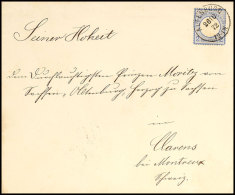 Seiner Hoheit
dem Durchlauchtigsten Prinzen Moritz von
Sachsen, Altenburg, Herzog zu Sachsen
in
Clarens
bei Montreux
Schweiz.